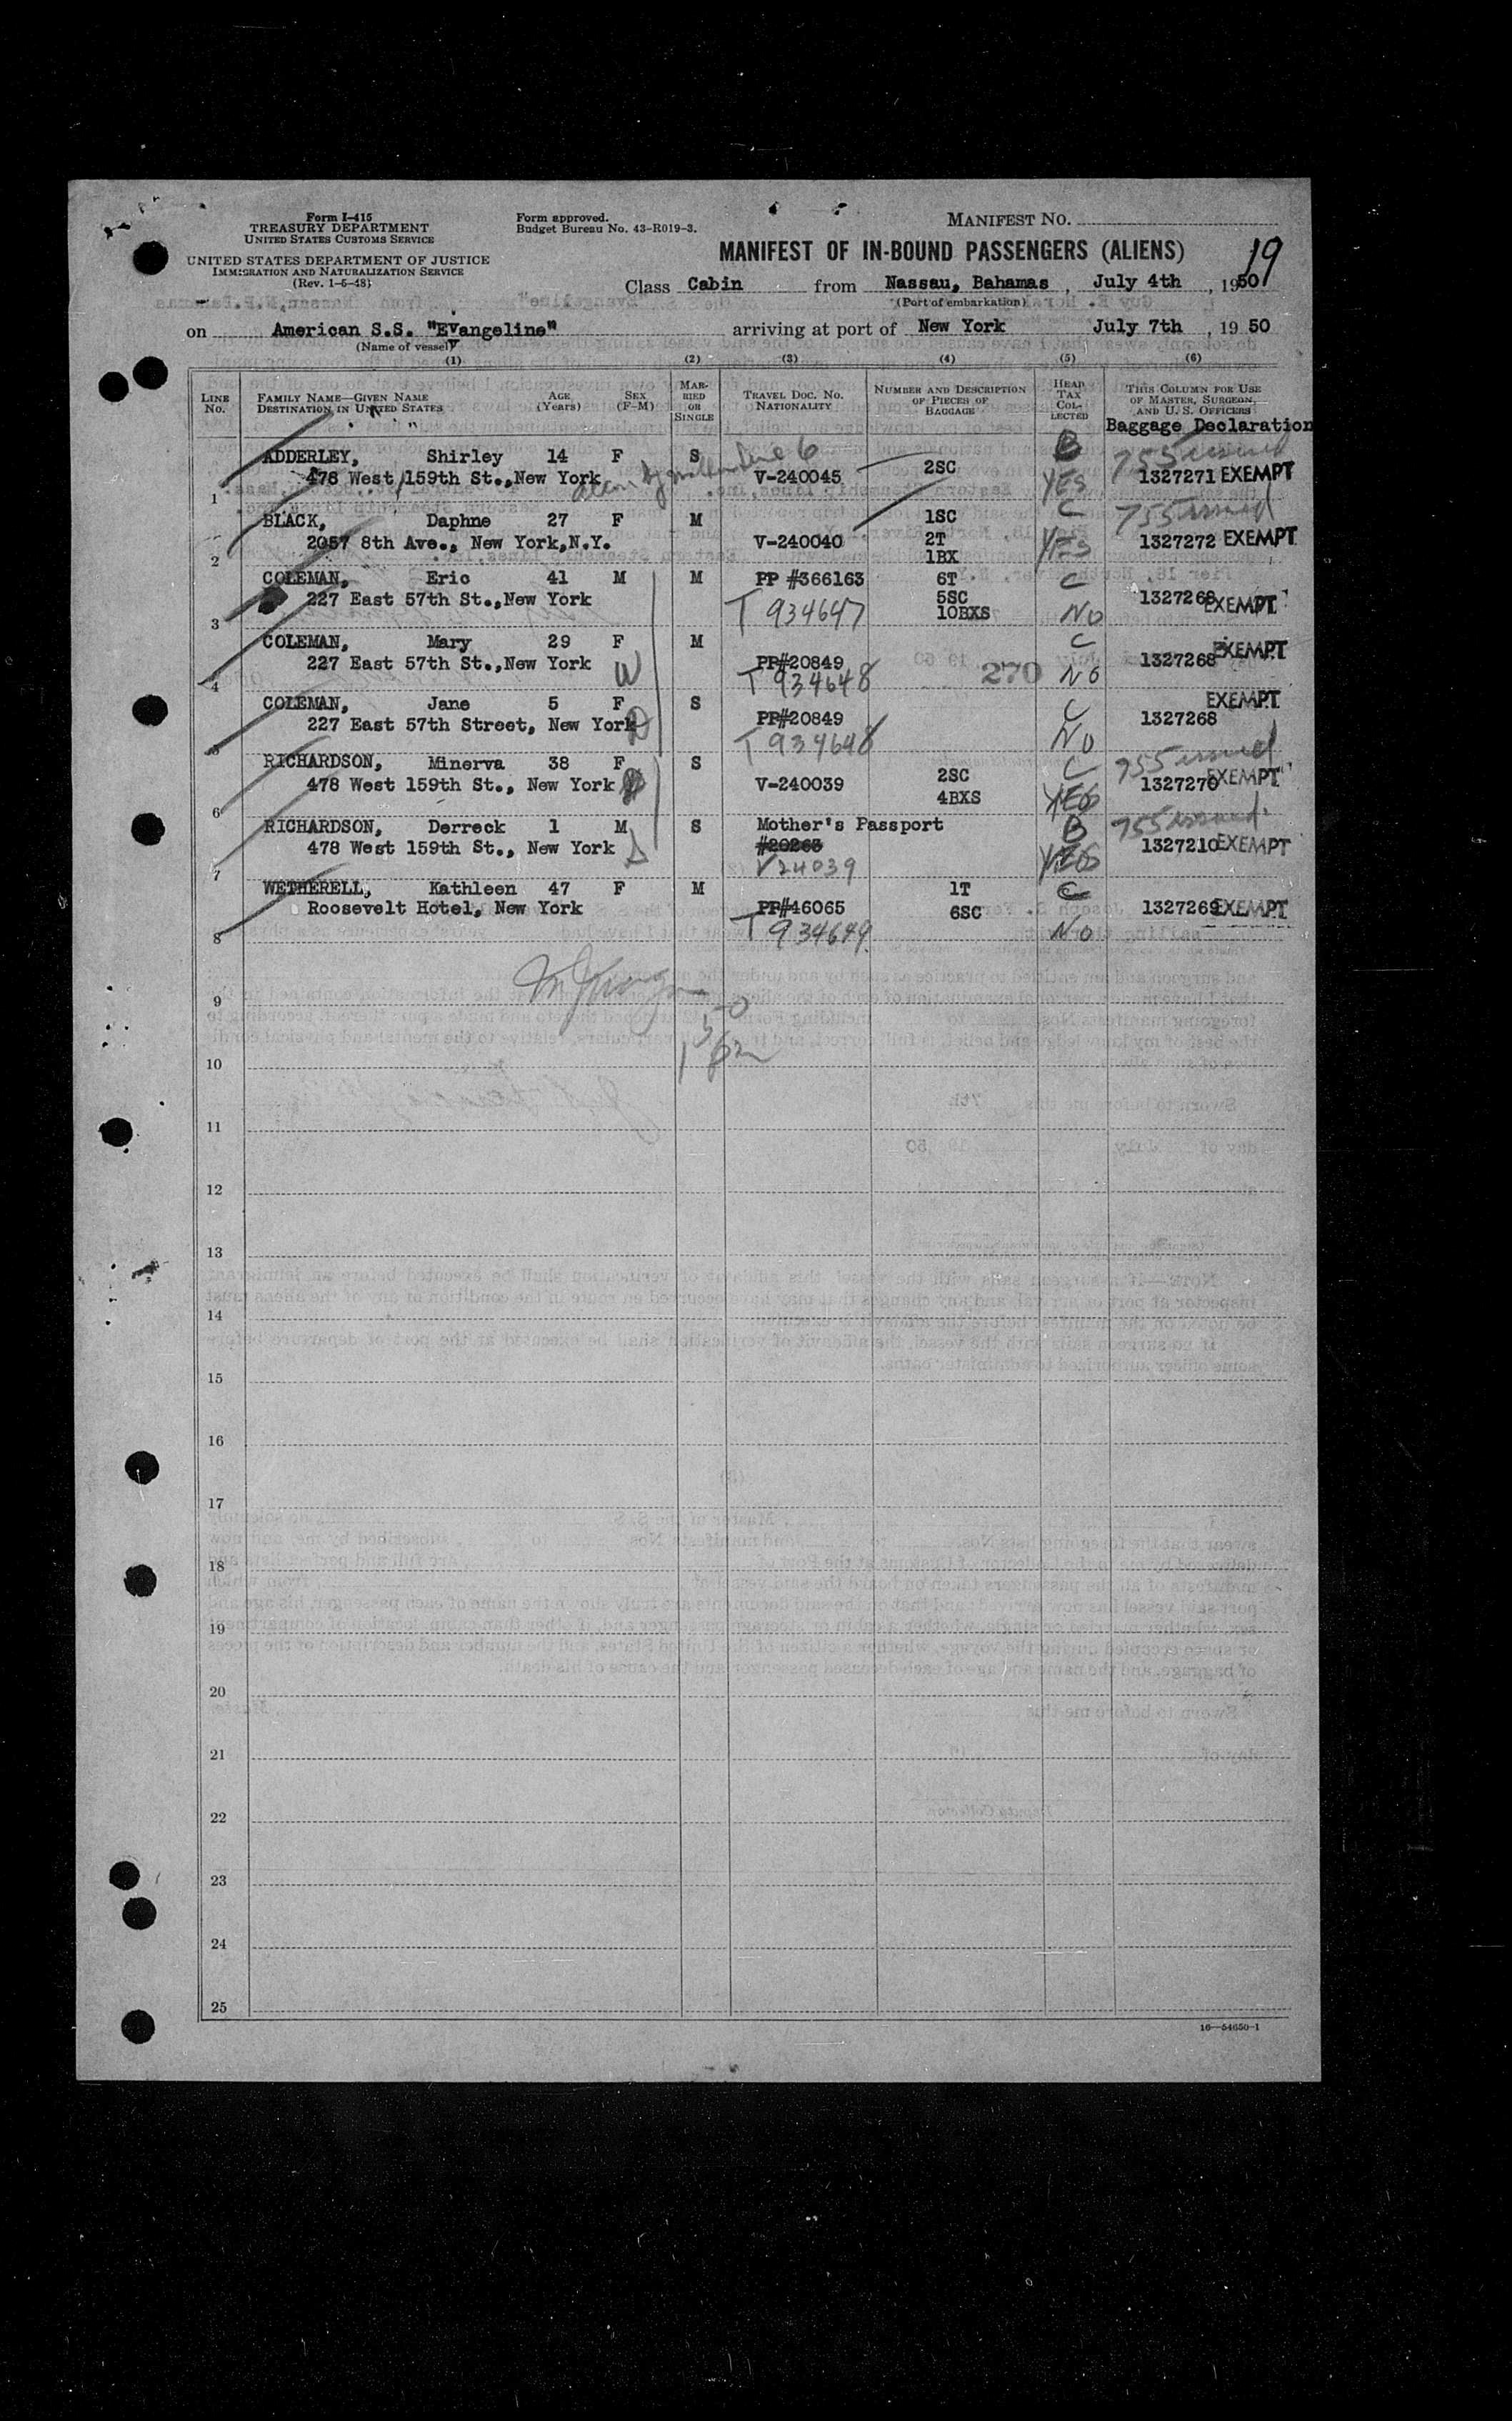 Form I-415
TREASURY DEPARTMENT
UNITED STATES CUSTOMS SERVICE
UNITED STATES DEPARTMENT OF JUSTICE
IMMIGRATION AND NATURALIZATION SERVICE
(Rev. 1-5-48)
Form approved.
Budget Bureau No. 43-R019-3.
MANIFEST NO.
19
MANIFEST OF IN-BOUND PASSENGERS (ALIENS)
Class Cabin from Nassau, Bahamas, July 4th, 1950
(Port of embarkation)
on American S.S. "Evangeline" arriving at port of New York July 7th, 1950
(Name of vessel)
(1) (2) (3) (4) (5) (6)
LINE NO.
FAMILY NAME—GIVEN NAME
DESTINATION IN UNITED STATES
AGE (Years)
SEX (F-M)
MARRIED OR SINGLE
TRAVEL DOC. NO. NATIONALITY
NUMBER AND DESCRIPTION OF PIECES OF BAGGAGE
HEAD TAX COLLECTED
THIS COLUMN FOR USE OF MASTER, SURGEON, AND U. S. OFFICERS
Baggage Declaration
ADDERLEY, Shirley 14 F S 2SC B 755 issued
1 478 West 159th St., New York V-240045 YES 1327271 EXEMPT
line 6
BLACK, Daphne 27 F M 1SC C 755 issued
2057 8th Ave., New York, N.Y. V-240040 2T YES 1327272 EXEMPT
2 1BX
COLEMAN, Eric 41 M M PP #366163 6T C
227 East 57th St., New York 5SC 1327268 EXEMPT
3 T 934647 10BXS No
COLEMAN, Mary 29 F M C EXEMPT
227 East 57th St., New York W PP#20849 1327268
4 T 934648 270 No
COLEMAN, Jane 5 F S C EXEMPT
227 East 57th Street, New York D PP#20849 1327268
5 T 934648 No
RICHARDSON, Minerva 38 F S 2SC C 755 issued
478 West 159th St., New York V-240039 4BXS YES 1327270 EXEMPT
6
RICHARDSON, Derreck 1 M S Mother's Passport B 755 issued
478 West 159th St., New York #20263 YES 1327210 EXEMPT
7 V24039
WETHERELL, Kathleen 47 F M 1T C
Roosevelt Hotel, New York PP#46065 6SC 1327269 EXEMPT
8 T 934649 No
9
10
11
12
13
14
15
16
17
18
19
20
21
22
23
24
25
16—54650-1